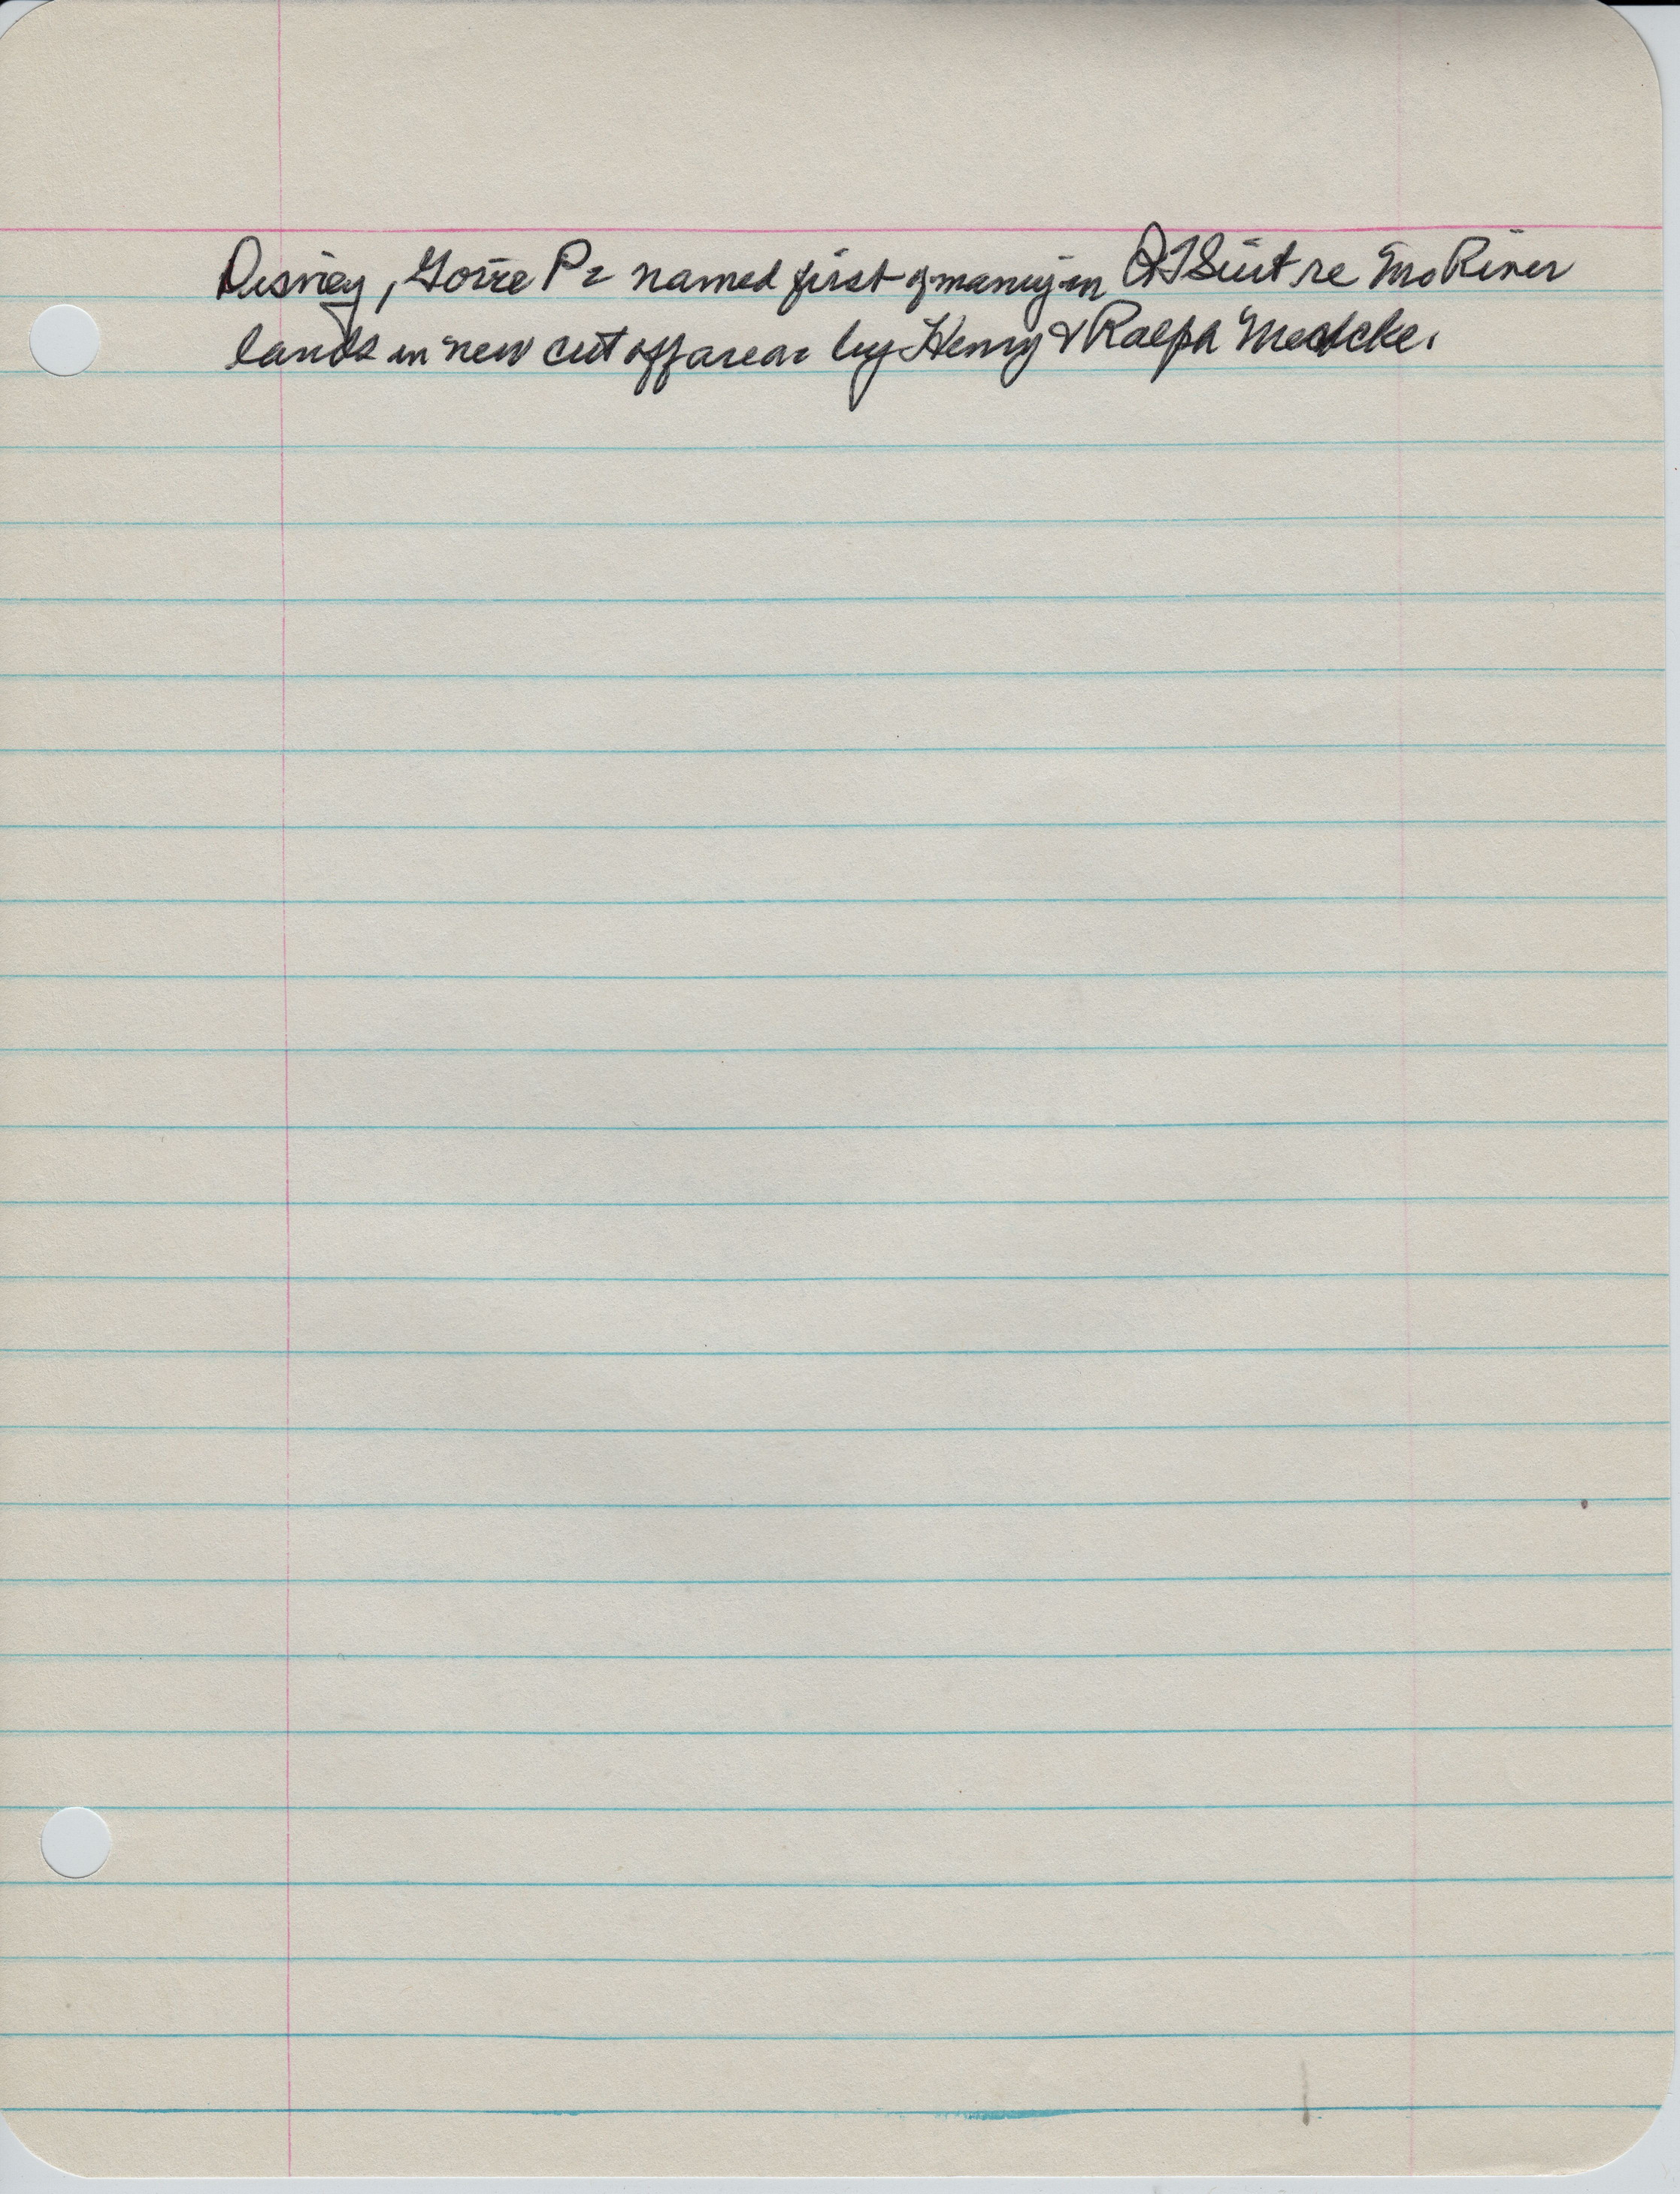 Disney, Goree P = named first of many in QT Suit re Mo River
lands in new cut off area = by Henry & Ralph Medcke.